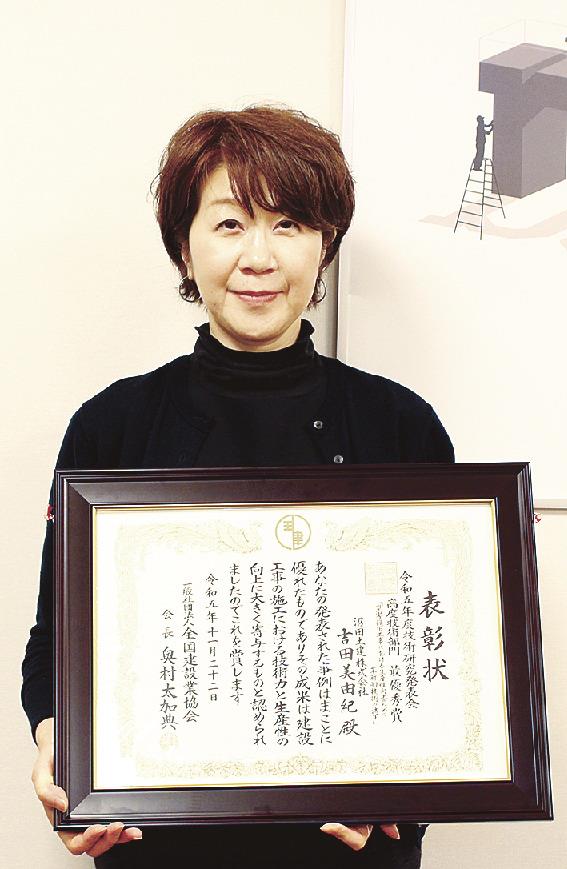 表彰状
令和五年度技術研究発表会
高度技術部門 最優秀賞
沼田土建株式会社
吉田美由紀 殿
あなたの発表された事例はまことに
優れたものでありその成果は建設
工事の施工における技術力と生産性の
向上に大きく寄与するものと認められ
ましたのでこれを賞します
令和五年十一月二十二日
一般社団法人全国建設業協会
会長 奥村太加典